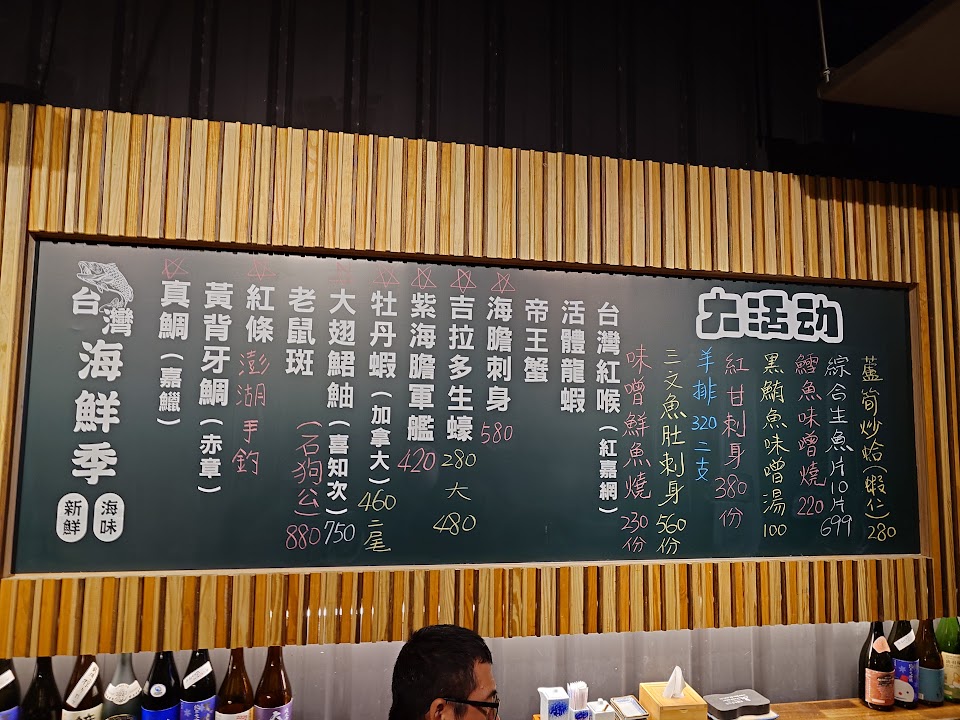 大活动
蘆筍炒蛤(蝦仁)280
綜合生魚片10片699
鱈魚味噌燒220
黑鮪魚味噌湯100
紅甘刺身380份
羊排320二支
三文魚肚刺身560份
味噌鮮魚燒230份
台灣紅喉(紅嘉網)
活體龍蝦
帝王蟹
海膽刺身580
吉拉多生蠔280大480
紫海膽軍艦420
牡丹蝦(加拿大)460二尾
大翅鮶鮋(喜知次)750
老鼠斑(石狗公)880
紅條澎湖手釣
黃背牙鯛(赤章)
真鯛(嘉鱲)
台灣海鮮季
海味
新鮮